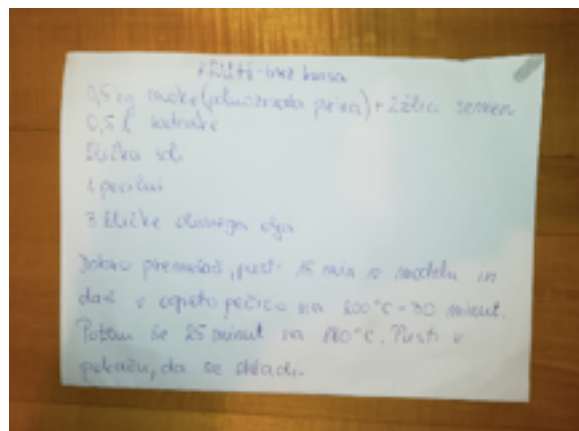 KRUH - brez kvasa
0,5 kg moke (polnozrnata pirina) + 2 žlici semen
0,5 l
žlička soli
1 pecilni
3 žličke olivnega olja
Dobro premešaš, pusti 15 min v modelu in
daš v ogreto pečico na 200°C - 30 minut.
Potem še 25 minut na 180°C. Pusti v
pekaču, da se ohladi.